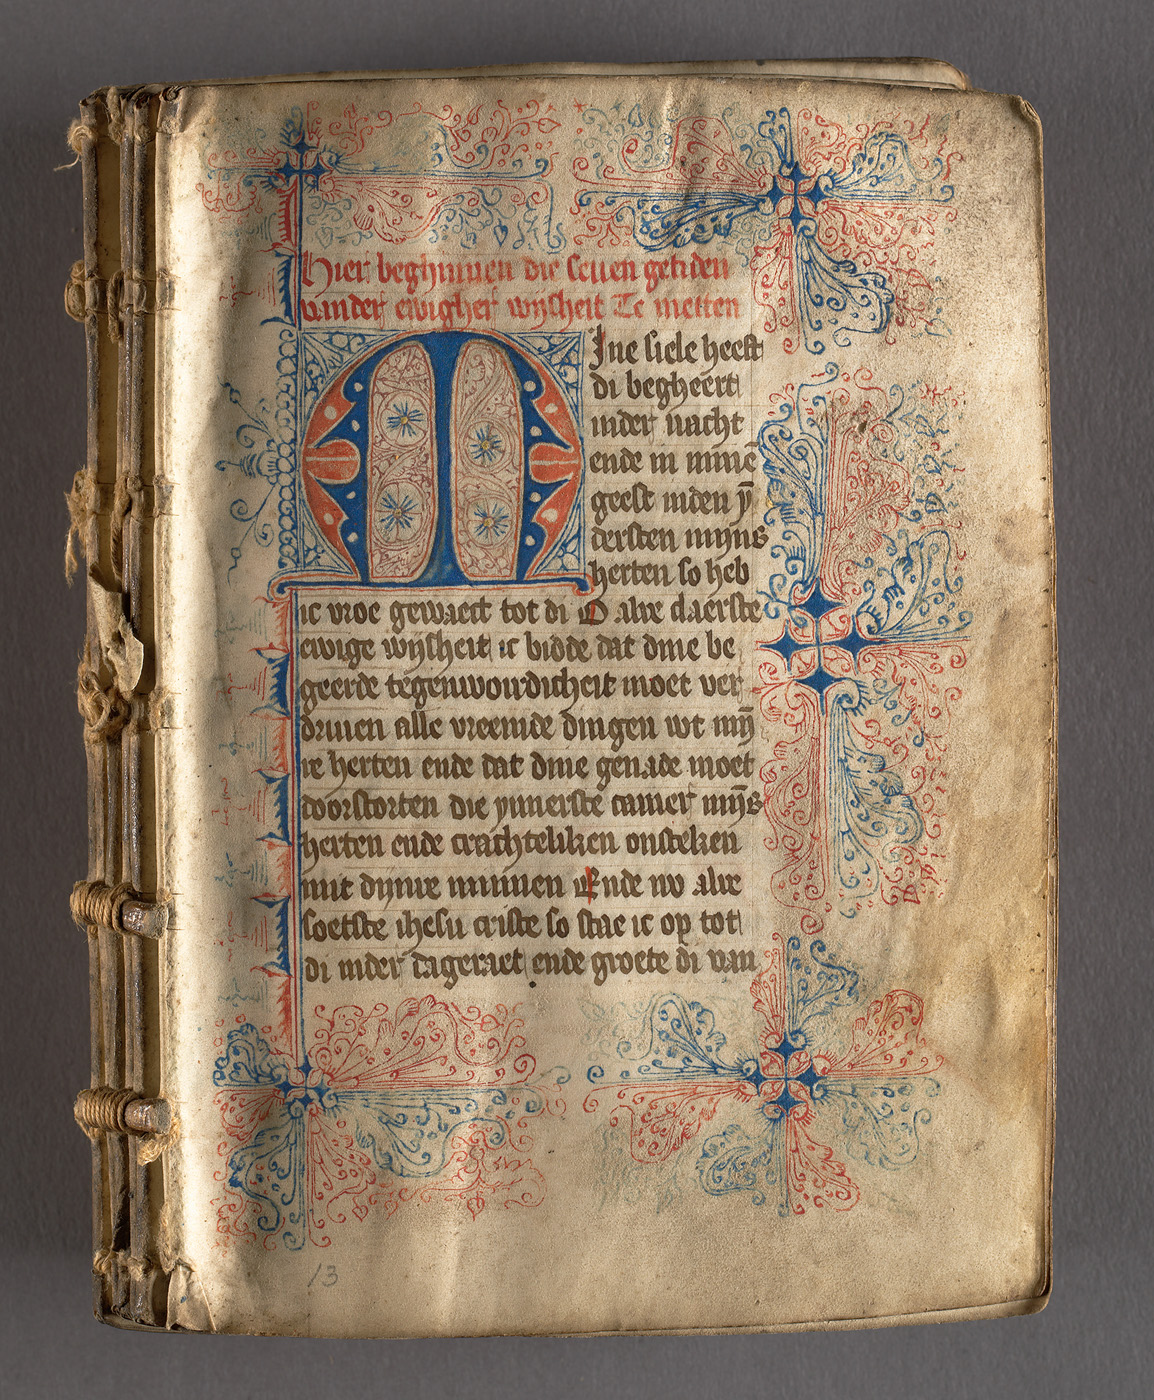 Hier beghinnen die seuen getiden
vander ewigher wijsheit Te metten
Mine siele heeft
di begheert
inder nacht
ende in minē
geest inden ȳ
dersten mijns
herten so heb
ic vroe gewaect tot di O alre claerste
ewige wijsheit ic bidde dat dine be
geerde tegenwoirdicheit moet ver
driuen alle vreemde dingen wt mȳ
re herten ende dat dine genade moet
doorstorten die ynnerste camer mȳs
herten ende crachteliken onsteken
mit dijnre minnen Ende nv alre
soetste ihesu criste so stae ic op tot
di inder dageraet ende groete di van
13